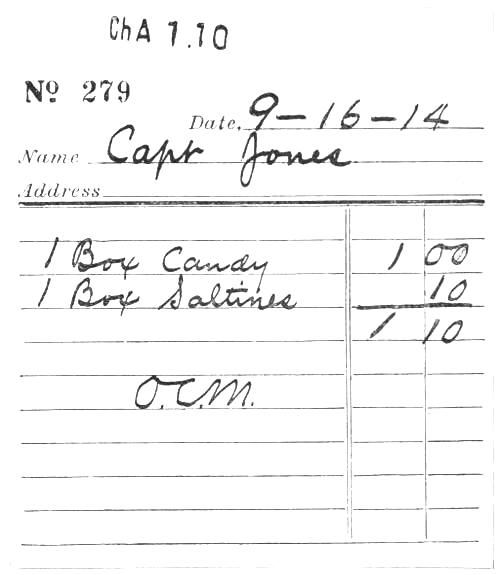 ChA 1.10
No 279
Date, 9-16-14
Name Capt Jones
Address
1 Box Candy 1 00
1 Box Saltines 10
1 10
O.C.M.